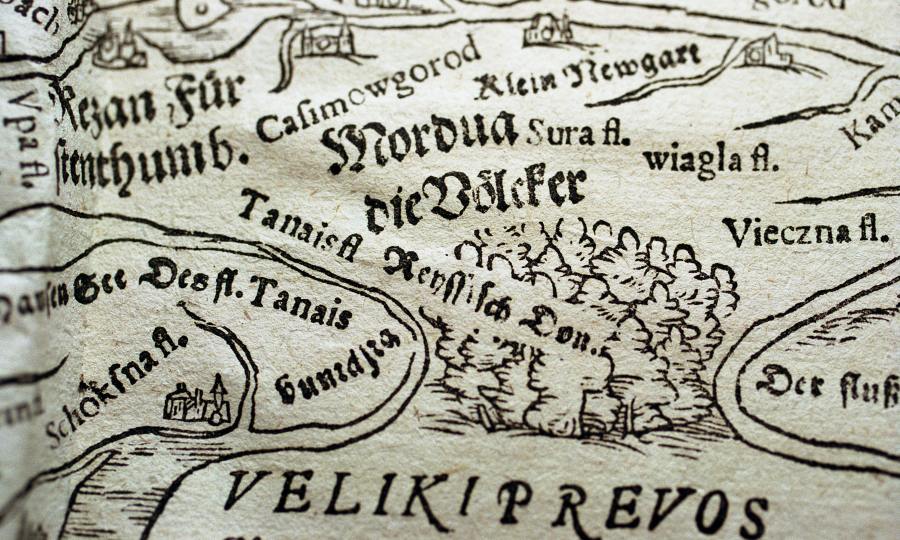 gorod
Rezan Für
stenthumb.
Casimowgorod
Klein Newgart
Mordua
die Völcker
Sura fl.
wiagla fl.
Kam
Vpa fl.
Vieczna fl.
Tanais fl
Reyssisch Don.
See Des fl. Tanais
Schoksna fl.
Der fluß
VELIKI PREVOS